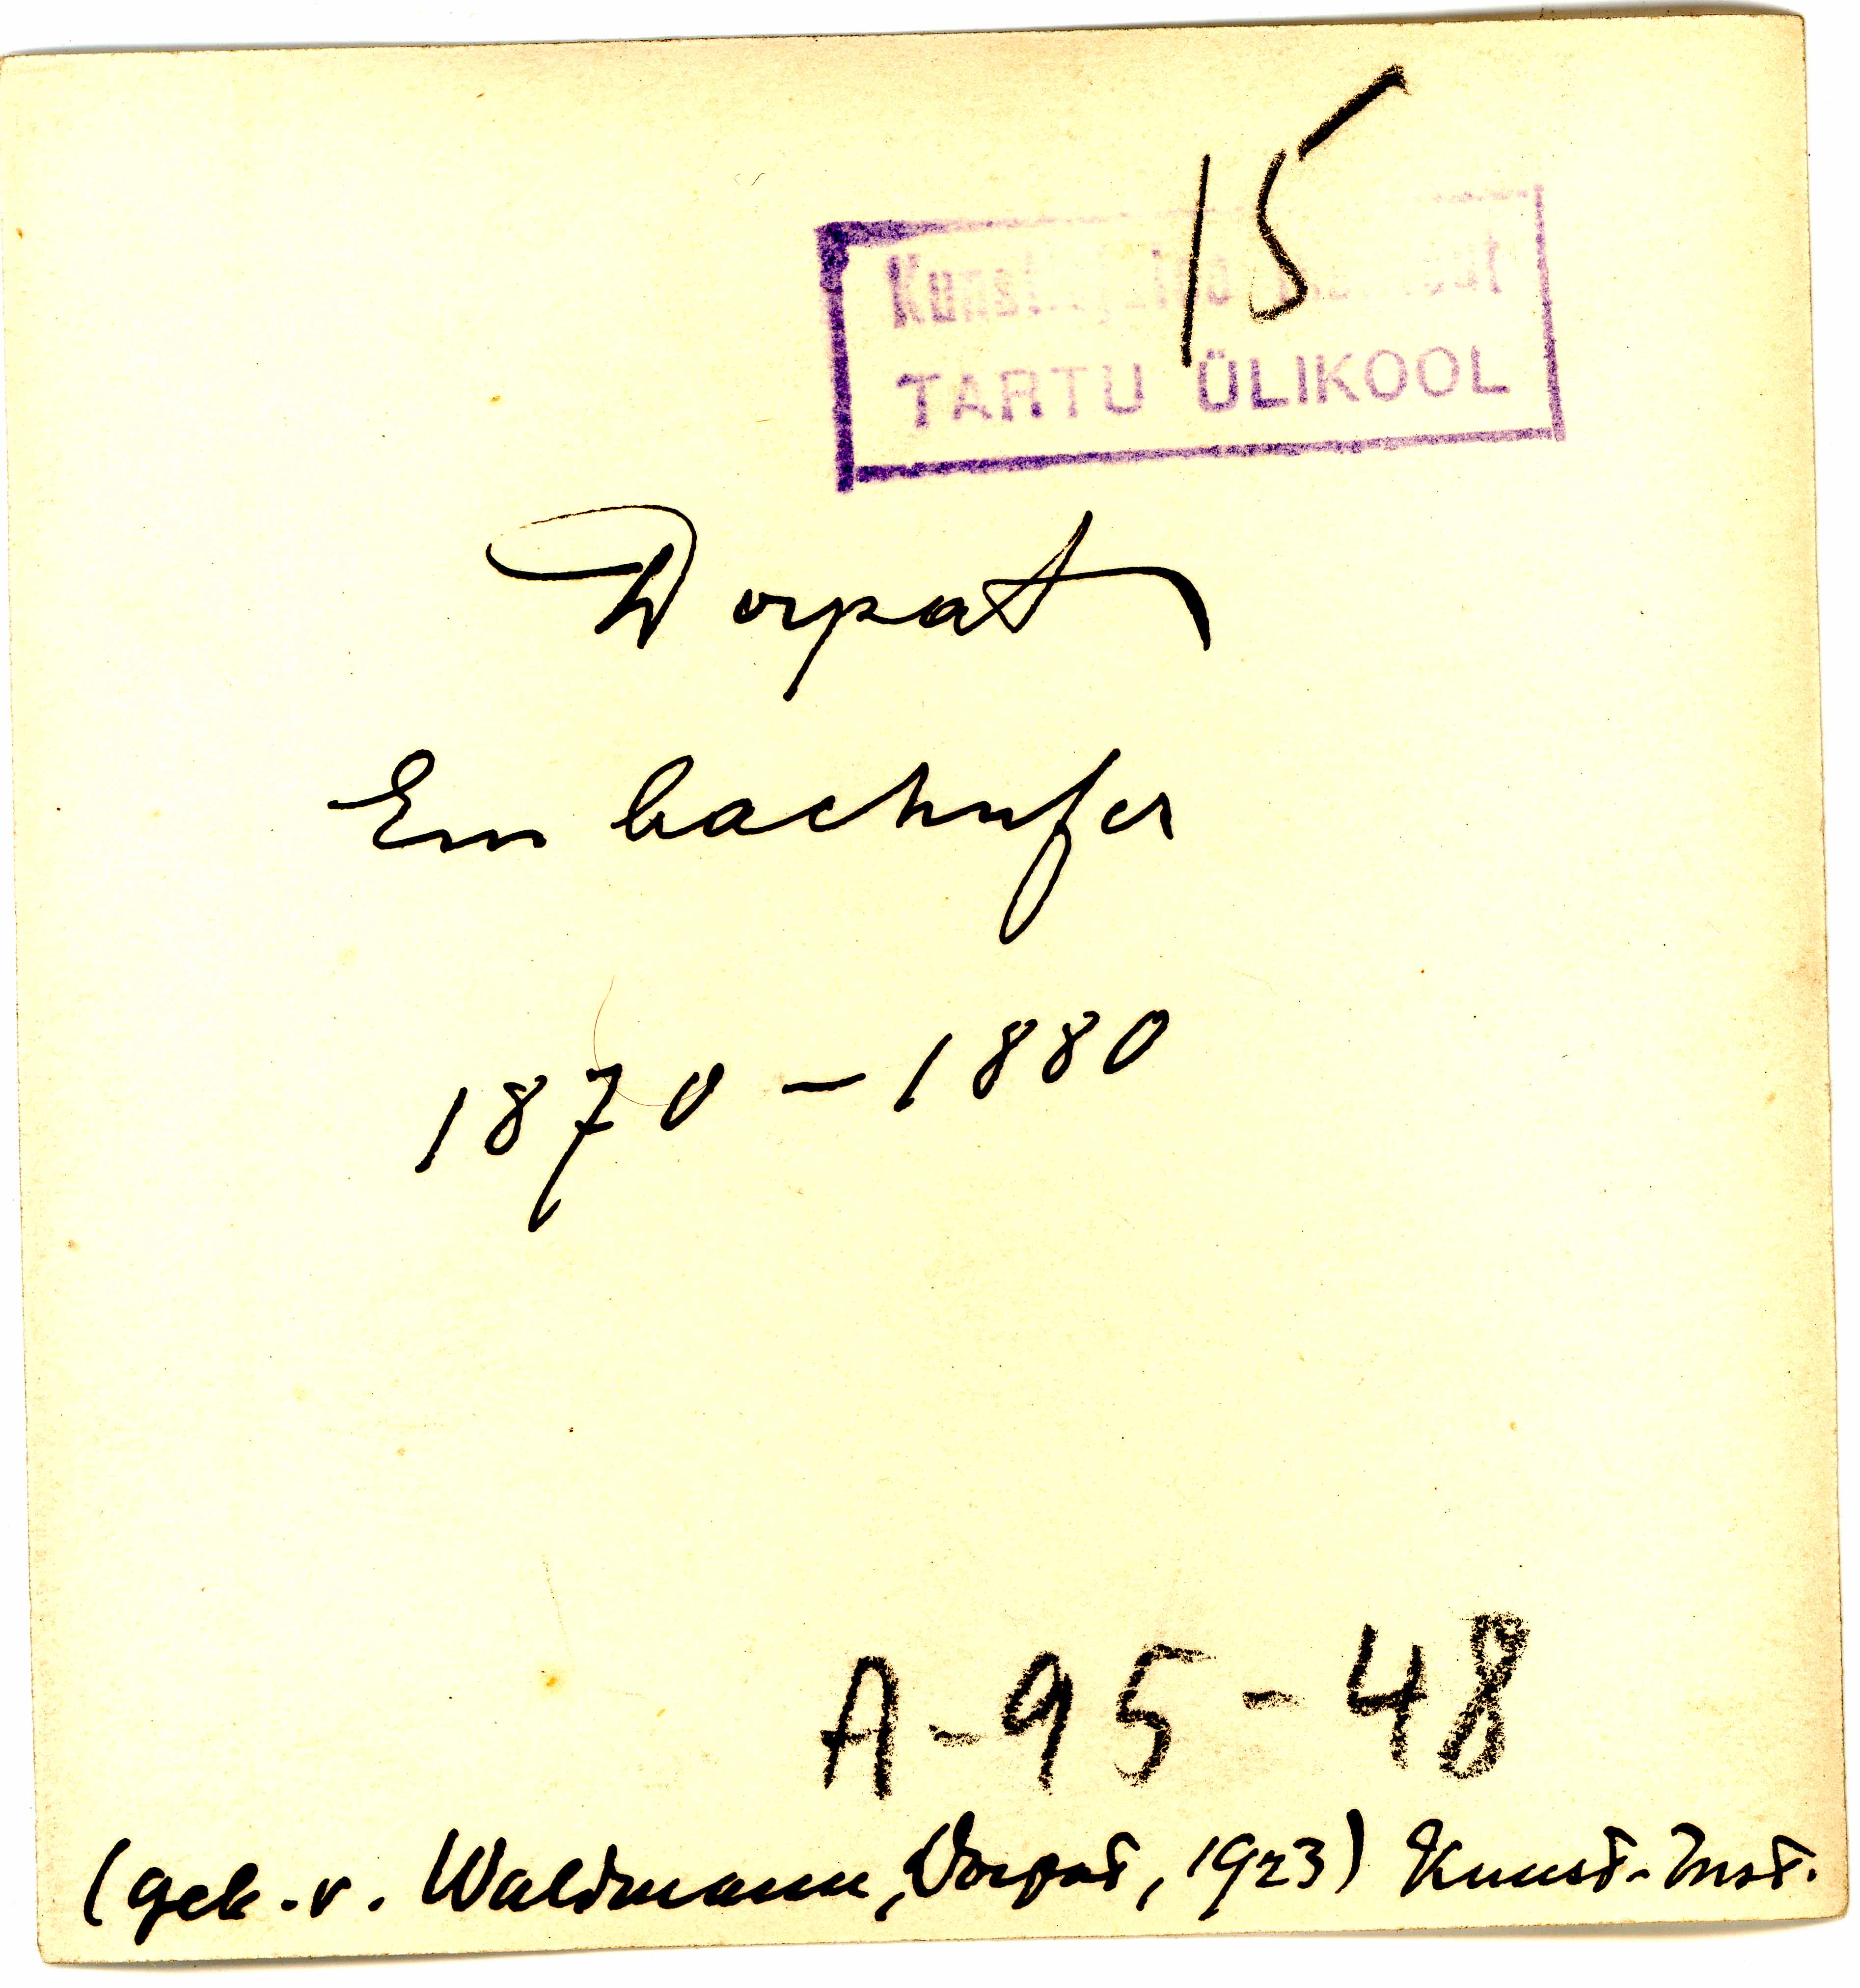 15
TARTU ÜLIKOOL
Dorpat
Embachufer
1870 – 1880
A-95-48
(gek. v. Waldmann, Dorpat, 1923) Kunst-Inst.